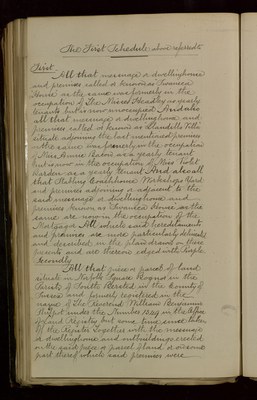 The First Schedule above referred to
First
All that messuage or dwellinghouse
and premises called or known as Swansea
House as the same was formerly in the
occupation of The Misses Headley as yearly
tenants but is now unoccupied And also
all that messuage or dwellinghouse and
premises called or known as Llandello Villa
situate adjoining the last mentioned premises
as the same was formerly in the occupation
of Miss Annie as a yearly tenant
but is now in the occupation of Miss Violet
Barden as a yearly tenant And also all
that Stabling Coachhouse Workshops Yard
and premises adjoining or adjacent to the
said messuage or dwelling house and
premises known as Swansea House as the
same are now in the occupation of the
Mortgagor All which said hereditaments
and premises are more particularly delineated
and described in the plan drawn on these
presents and are thereon edged with Purple
Secondly
All that piece or parcel of land
situate in Norfolk Square Bognor in the
Parish of South Bersted in the County of
Sussex and formerly registered in the
name of The Reverend William Benjamin
under the Number in the Office
of Land Registry but some time since taken
off the Register Together with the messuage
or dwellinghouse and outbuildings erected
on the said piece or parcel of land or on some
part thereof which said premises were